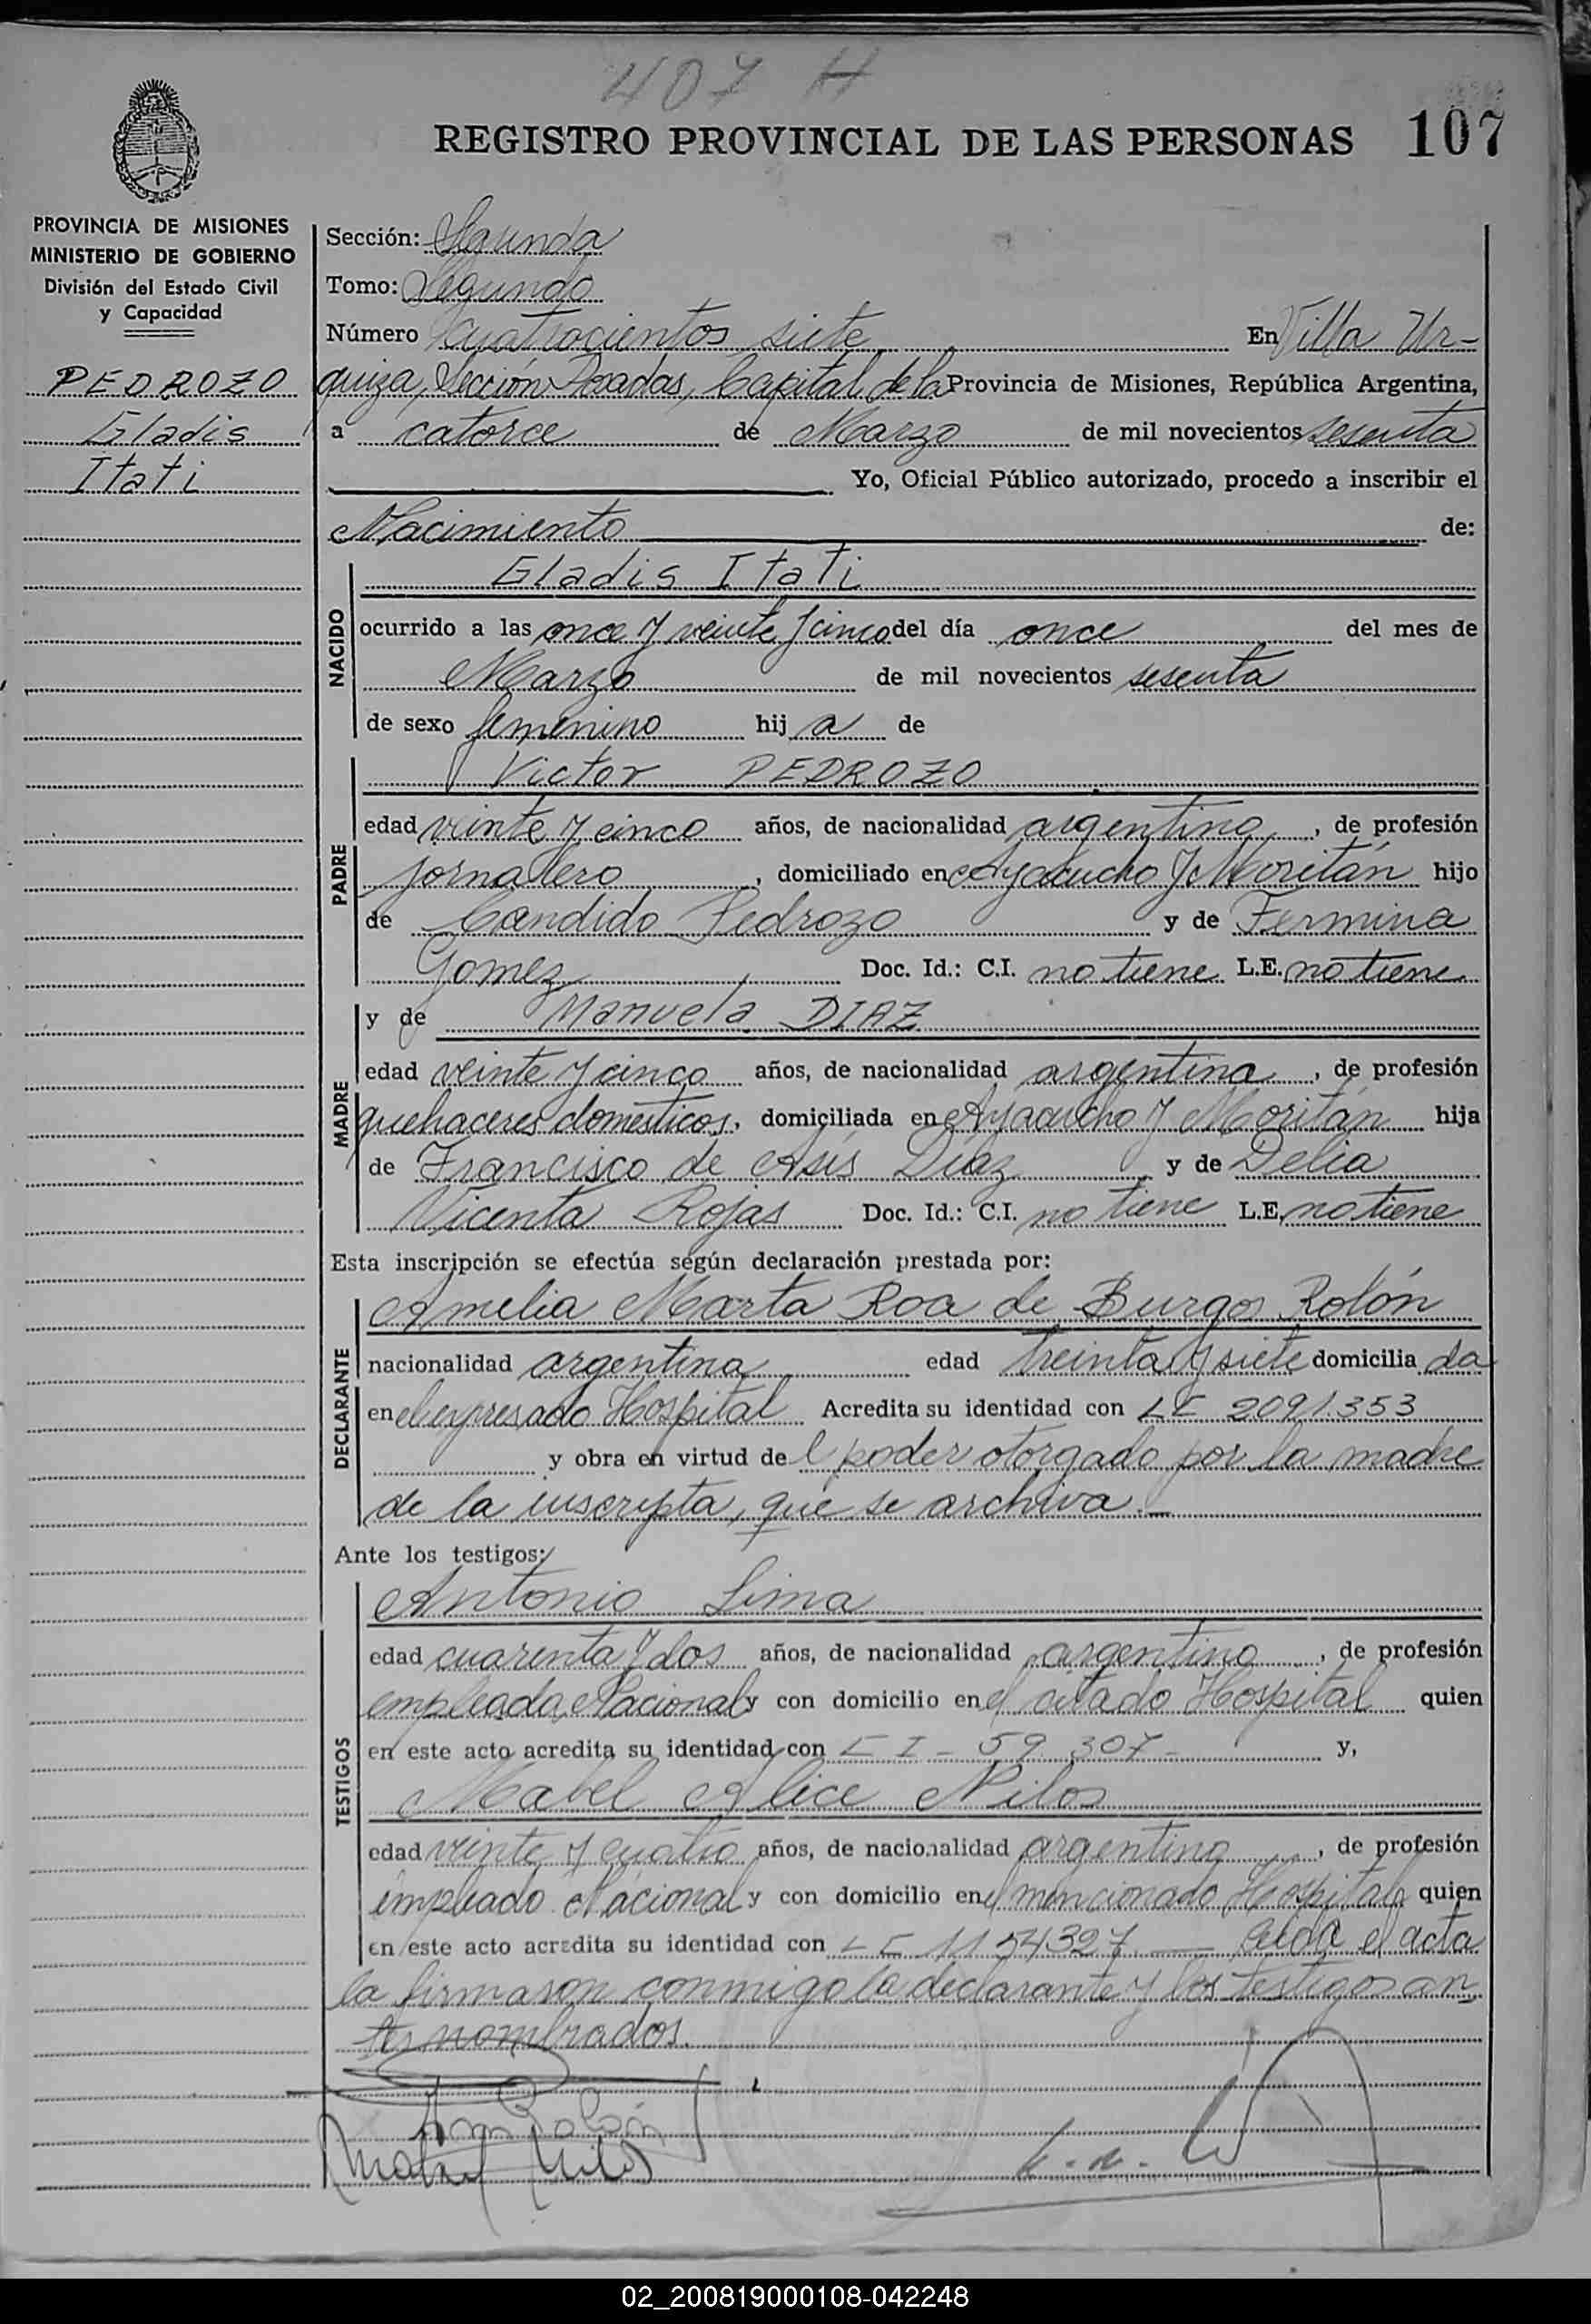 407 H
REGISTRO PROVINCIAL DE LAS PERSONAS 107
PROVINCIA DE MISIONES
MINISTERIO DE GOBIERNO
División del Estado Civil
y Capacidad
PEDROZO
Gladis
Itati
Sección: Segunda
Tomo: Segundo
Número Cuatrocientos siete En Villa Ur-
quiza, Sección Posadas, Capital de la Provincia de Misiones, República Argentina,
a catorce de Marzo de mil novecientos sesenta
Yo, Oficial Público autorizado, procedo a inscribir el
Nacimiento de:
NACIDO
Gladis Itati
ocurrido a las once y veinte y cinco del día once del mes de
Marzo de mil novecientos sesenta
de sexo femenino hij a de
PADRE
Victor PEDROZO
edad veinte y cinco años, de nacionalidad argentino, de profesión
jornalero, domiciliado en Ayacucho y Moritán hijo
de Candido Pedrozo y de Fermina
Gomez Doc. Id.: C.I. no tiene L.E. no tiene
MADRE
y de Manuela DIAZ
edad veinte y cinco años, de nacionalidad argentina, de profesión
quehaceres domésticos, domiciliada en Ayacucho y Moritán hija
de Francisco de Asís Díaz y de Delia
Vicenta Rojas Doc. Id.: C.I. no tiene L.E. no tiene
Esta inscripción se efectúa según declaración prestada por:
DECLARANTE
Amelia Marta Roa de Burgos Rolón
nacionalidad argentina edad treinta y siete domicilia da
en el expresado Hospital Acredita su identidad con LE 2091.353
y obra en virtud de l poder otorgado por la madre
de la inscripta, que se archiva.
Ante los testigos:
TESTIGOS
Antonio Lima
edad cuarenta y dos años, de nacionalidad argentino, de profesión
empleada Nacional y con domicilio en el citado Hospital quien
en este acto acredita su identidad con CI - 59 307 - y,
Mabel Alice Nilos
edad veinte y cuatro años, de nacionalidad argentina, de profesión
empleado Nacional y con domicilio en el mencionado Hospital quien
en este acto acredita su identidad con LE 1154327 Leida el acta
la firmaron conmigo la declarante y los testigos an-
tes nombrados.
02_200819000108-042248